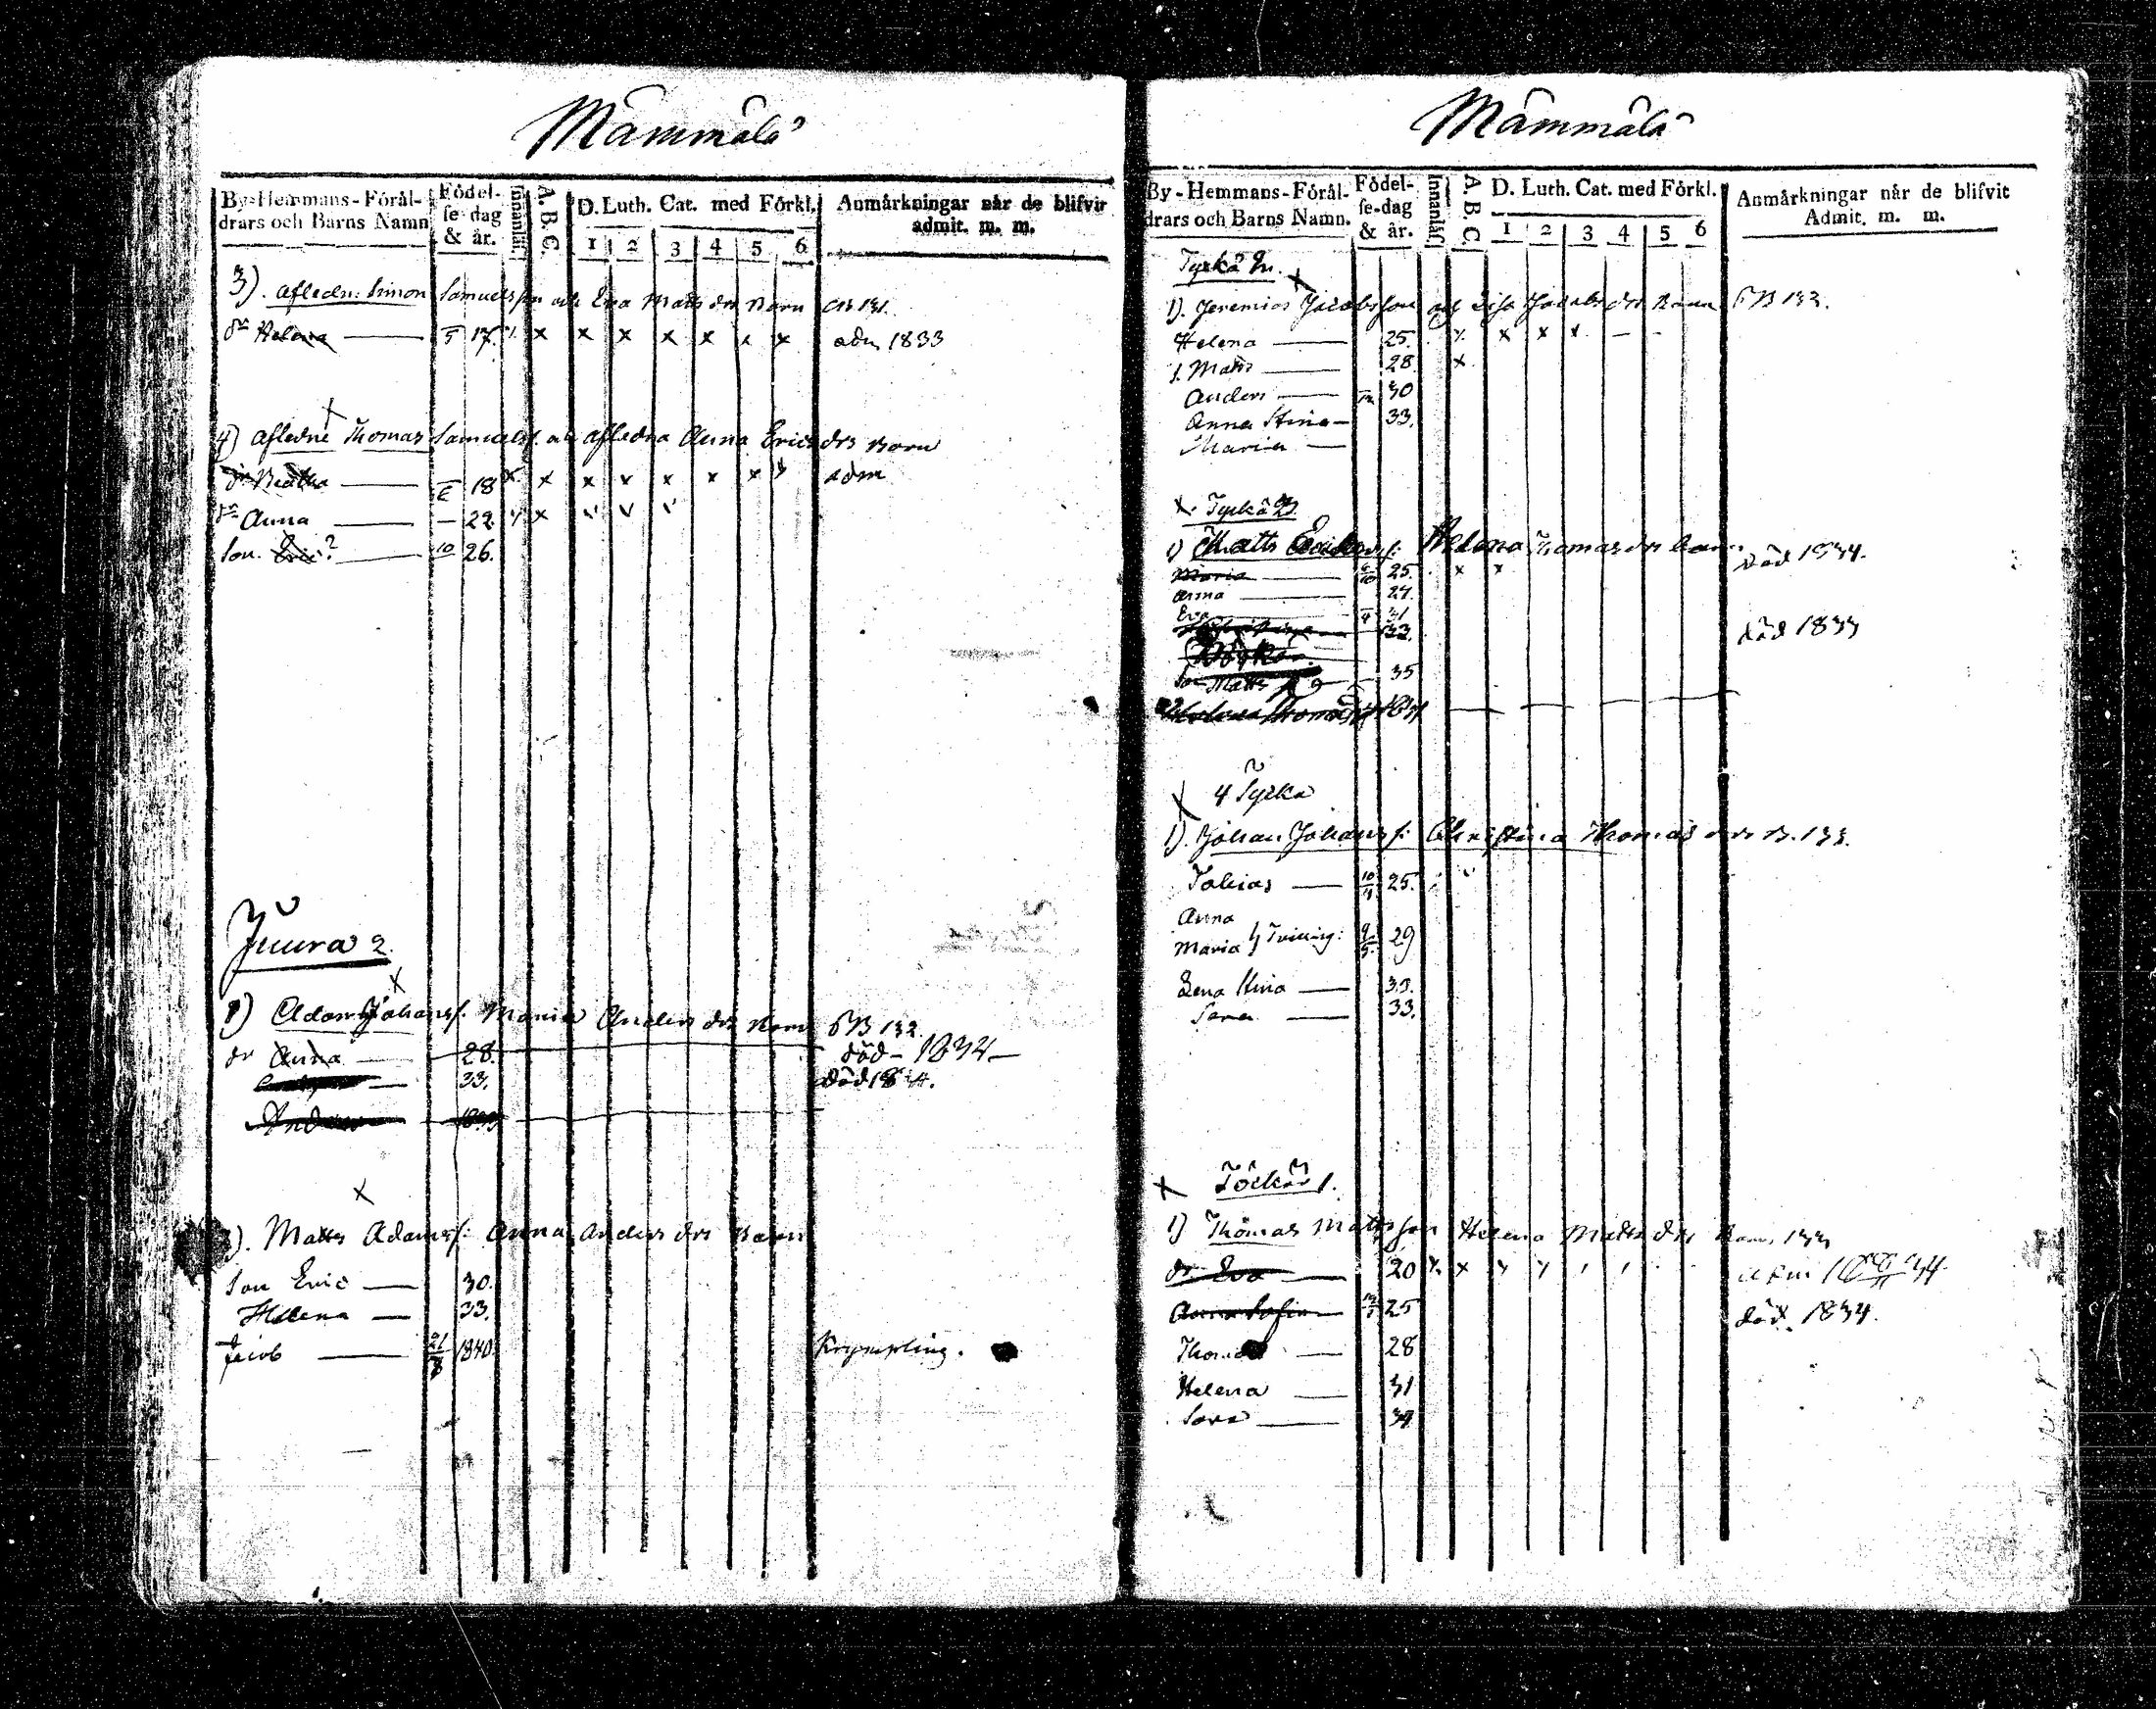 Mämmälä
By-Hemmans-Föräl-
drars och Barns Namn
Födel-
se-dag
& år.
Innanläs.
A. B. C.
D. Luth. Cat. med Förkl.
1 2 3 4 5 6
Anmärkningar når de blifvit
admit. m. m.
3). Afledn: Simon Samuelsson och Eva Matts dr Barn
dr Helena — 5 17. x x x x x x x adm 1833
4) Afledne Thomas Samuelss. och afledna Anna Erics drs Barn
dr Beatha — 18 x x x x x x x x adm
dr Anna — 22
Son. Eric? — 10 26.
Juura 2.
1) Adam Johanss: Maria Anders drs Barn 132.
dr Anna — 28. död - 1834 -
33. död 18
Anders
). Matts Adamss: Anna Anders drs Barn
Son Eric — 30.
Helena — 33.
Jacob — 1840. Krympling.
Mämmälä
By-Hemmans-Föräl-
drars och Barns Namn.
Födel-
se-dag
& år.
Innanläs.
A. B. C.
D. Luth. Cat. med Förkl.
1 2 3 4 5 6
Anmärkningar når de blifvit
Admit. m. m.
Tyrkä
1). Jeremias Jacobsson och Lisa Jacobs drs Barn 132.
Helena — 25. x x x x — -
Matts — 28 x
Anders — 30
Anna Stina — 33.
Maria —
x Tyrkä
1) Matts Ericss: Helena Thomas drs Barn
Maria — 25. x x död 1834.
Anna — 27.
Eva — 4 31
32. död 1833
Son Matts — 35
Helena Thomas
x 4 Tyrkä
1). Johan Johanss: Christina Thomas drs B. 133.
Tobias — 10 25.
Anna
Maria } Tvilling: 9 5. 29
Lena Stina — 33.
Sara — 33.
x Töckäri 1.
1) Thomas Mattsson Helena Matts drs Barn 133
dr Eva — 20 adm 34.
Anna Sofia — 25 död. 1834.
Thomas — 28
Helena — 31
Sara — 34